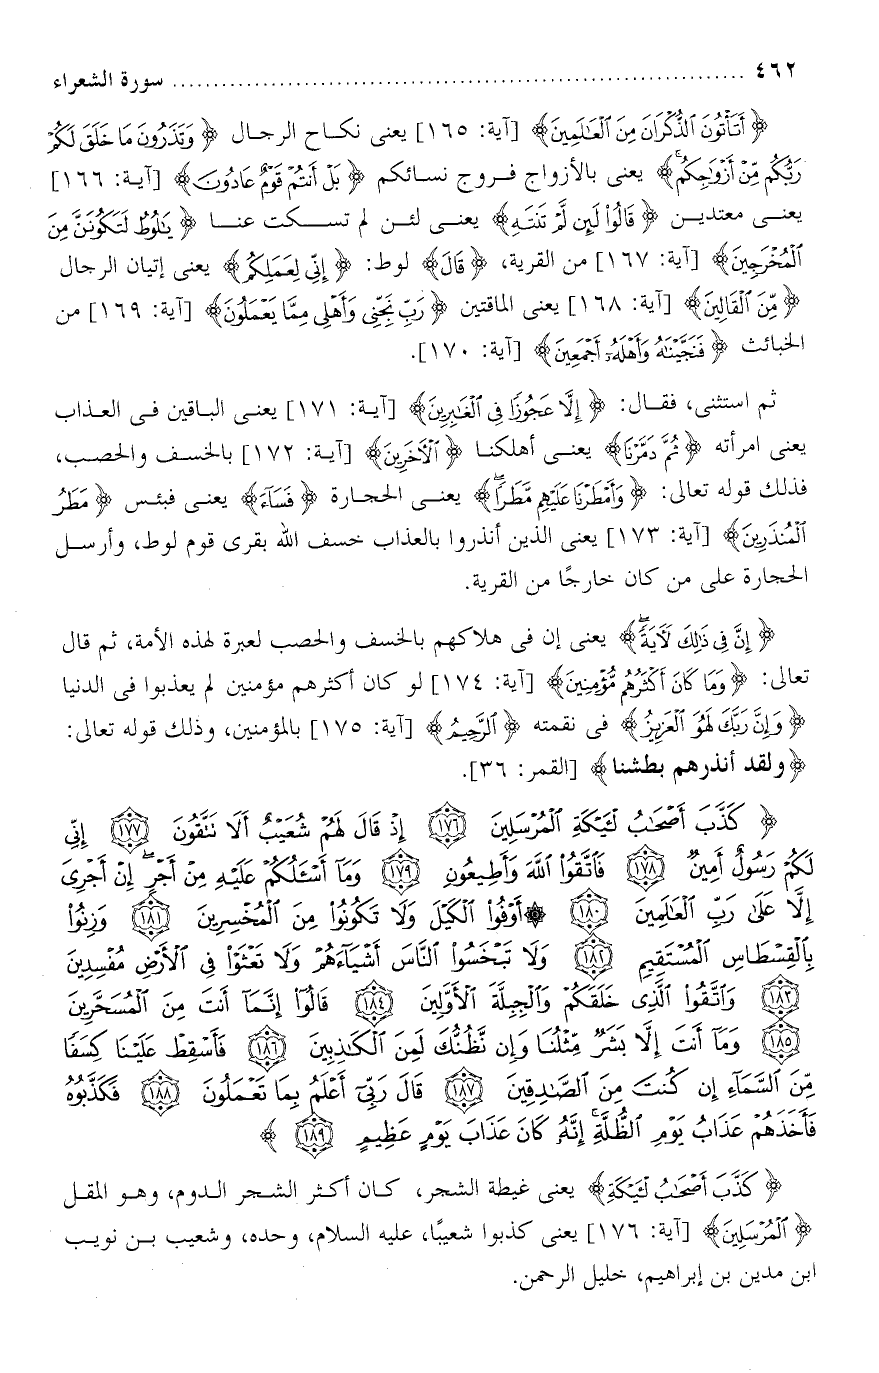 ٤٦٢ ........................................................................ سورة الشعراء
﴿أَتَأْتُونَ ٱلذُّكْرَانَ مِنَ ٱلْعَٰلَمِينَ﴾ [آية: ١٦٥] يعنى نكاح الرجال ﴿وَتَذَرُونَ مَا خَلَقَ لَكُمْ
رَبُّكُم مِّنْ أَزْوَٰجِكُمۚ﴾ يعنى بالأزواج فروج نسائكم ﴿بَلْ أَنتُمْ قَوْمٌ عَادُونَ﴾ [آية: ١٦٦]
يعنى معتدين ﴿قَالُوا۟ لَئِن لَّمْ تَنتَهِ﴾ يعنى لئن لم تسكت عنا ﴿يَٰلُوطُ لَتَكُونَنَّ مِنَ
ٱلْمُخْرَجِينَ﴾ [آية: ١٦٧] من القرية، ﴿قَالَ﴾ لوط: ﴿إِنِّى لِعَمَلِكُم﴾ يعنى إتيان الرجال
﴿مِّنَ ٱلْقَالِينَ﴾ [آية: ١٦٨] يعنى الماقتين ﴿رَبِّ نَجِّنِى وَأَهْلِى مِمَّا يَعْمَلُونَ﴾ [آية: ١٦٩] من
الخبائث ﴿فَنَجَّيْنَٰهُ وَأَهْلَهُۥٓ أَجْمَعِينَ﴾ [آية: ١٧٠].
ثم استثنى، فقال: ﴿إِلَّا عَجُوزًا فِى ٱلْغَٰبِرِينَ﴾ [آية: ١٧١] يعنى الباقين فى العذاب
يعنى امرأته ﴿ثُمَّ دَمَّرْنَا﴾ يعنى أهلكنا ﴿ٱلْءَاخَرِينَ﴾ [آية: ١٧٢] بالخسف والحصب،
فذلك قوله تعالى: ﴿وَأَمْطَرْنَا عَلَيْهِم مَّطَرًاۖ﴾ يعنى الحجارة ﴿فَسَآءَ﴾ يعنى فبئس ﴿مَطَرُ
ٱلْمُنذَرِينَ﴾ [آية: ١٧٣] يعنى الذين أنذروا بالعذاب خسف الله بقرى قوم لوط، وأرسل
الحجارة على من كان خارجًا من القرية.
﴿إِنَّ فِى ذَٰلِكَ لَءَايَةًۖ﴾ يعنى إن فى هلاكهم بالخسف والحصب لعبرة لهذه الأمة، ثم قال
تعالى: ﴿وَمَا كَانَ أَكْثَرُهُم مُّؤْمِنِينَ﴾ [آية: ١٧٤] لو كان أكثرهم مؤمنين لم يعذبوا فى الدنيا
﴿وَإِنَّ رَبَّكَ لَهُوَ ٱلْعَزِيزُ﴾ فى نقمته ﴿ٱلرَّحِيمُ﴾ [آية: ١٧٥] بالمؤمنين، وذلك قوله تعالى:
﴿ولقد أنذرهم بطشنا﴾ [القمر: ٣٦].
﴿كَذَّبَ أَصْحَٰبُ لْـَٔيْكَةِ ٱلْمُرْسَلِينَ ١٧٦ إِذْ قَالَ لَهُمْ شُعَيْبٌ أَلَا تَتَّقُونَ ١٧٧ إِنِّى
لَكُمْ رَسُولٌ أَمِينٌ ١٧٨ فَٱتَّقُوا۟ ٱللَّهَ وَأَطِيعُونِ ١٧٩ وَمَآ أَسْـَٔلُكُمْ عَلَيْهِ مِنْ أَجْرٍۖ إِنْ أَجْرِىَ
إِلَّا عَلَىٰ رَبِّ ٱلْعَٰلَمِينَ ١٨٠ ۞ أَوْفُوا۟ ٱلْكَيْلَ وَلَا تَكُونُوا۟ مِنَ ٱلْمُخْسِرِينَ ١٨١ وَزِنُوا۟
بِٱلْقِسْطَاسِ ٱلْمُسْتَقِيمِ ١٨٢ وَلَا تَبْخَسُوا۟ ٱلنَّاسَ أَشْيَآءَهُمْ وَلَا تَعْثَوْا۟ فِى ٱلْأَرْضِ مُفْسِدِينَ
١٨٣ وَٱتَّقُوا۟ ٱلَّذِى خَلَقَكُمْ وَٱلْجِبِلَّةَ ٱلْأَوَّلِينَ ١٨٤ قَالُوٓا۟ إِنَّمَآ أَنتَ مِنَ ٱلْمُسَحَّرِينَ
١٨٥ وَمَآ أَنتَ إِلَّا بَشَرٌ مِّثْلُنَا وَإِن نَّظُنُّكَ لَمِنَ ٱلْكَٰذِبِينَ ١٨٦ فَأَسْقِطْ عَلَيْنَا كِسَفًا
مِّنَ ٱلسَّمَآءِ إِن كُنتَ مِنَ ٱلصَّٰدِقِينَ ١٨٧ قَالَ رَبِّىٓ أَعْلَمُ بِمَا تَعْمَلُونَ ١٨٨ فَكَذَّبُوهُ
فَأَخَذَهُمْ عَذَابُ يَوْمِ ٱلظُّلَّةِۚ إِنَّهُۥ كَانَ عَذَابَ يَوْمٍ عَظِيمٍ ١٨٩﴾
﴿كَذَّبَ أَصْحَٰبُ لْـَٔيْكَةِ﴾ يعنى غيطة الشجر، كان أكثر الشجر الدوم، وهو المقل
﴿ٱلْمُرْسَلِينَ﴾ [آية: ١٧٦] يعنى كذبوا شعيبًا، عليه السلام، وحده، وشعيب بن نويب
ابن مدين بن إبراهيم، خليل الرحمن.